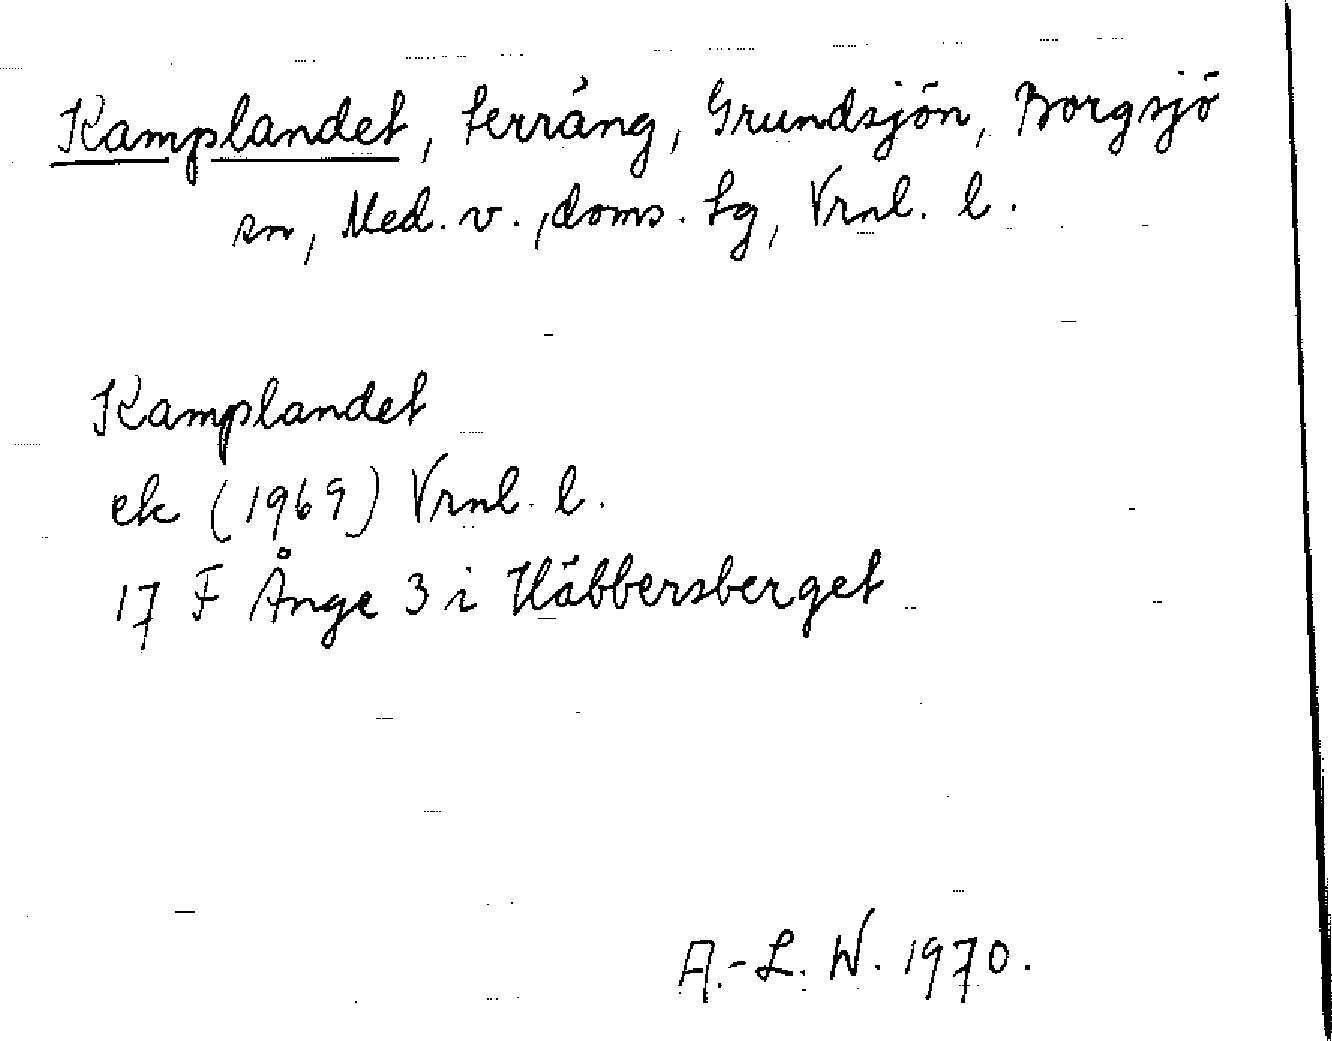 Kamplandet, terräng, Grundsjön, Borgsjö
sn, Med. v., doms. tg, Vrnl. l.
Kamplandet
ek (1969) Vrnl. l.
17 F Ånge 3 i Häbbersberget
A.-L. W. 1970.